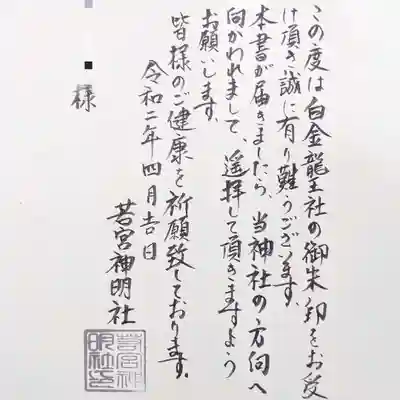 この度は白金龍王社の御朱印をお受
け頂き誠に有り難うございます。
本書が届きましたら、当神社の方向へ
向かわれまして、遥拝して頂きますよう
お願いします。
皆様のご健康を祈願致しております。
令和二年四月吉日
若宮神明社
様
若宮神
明社之